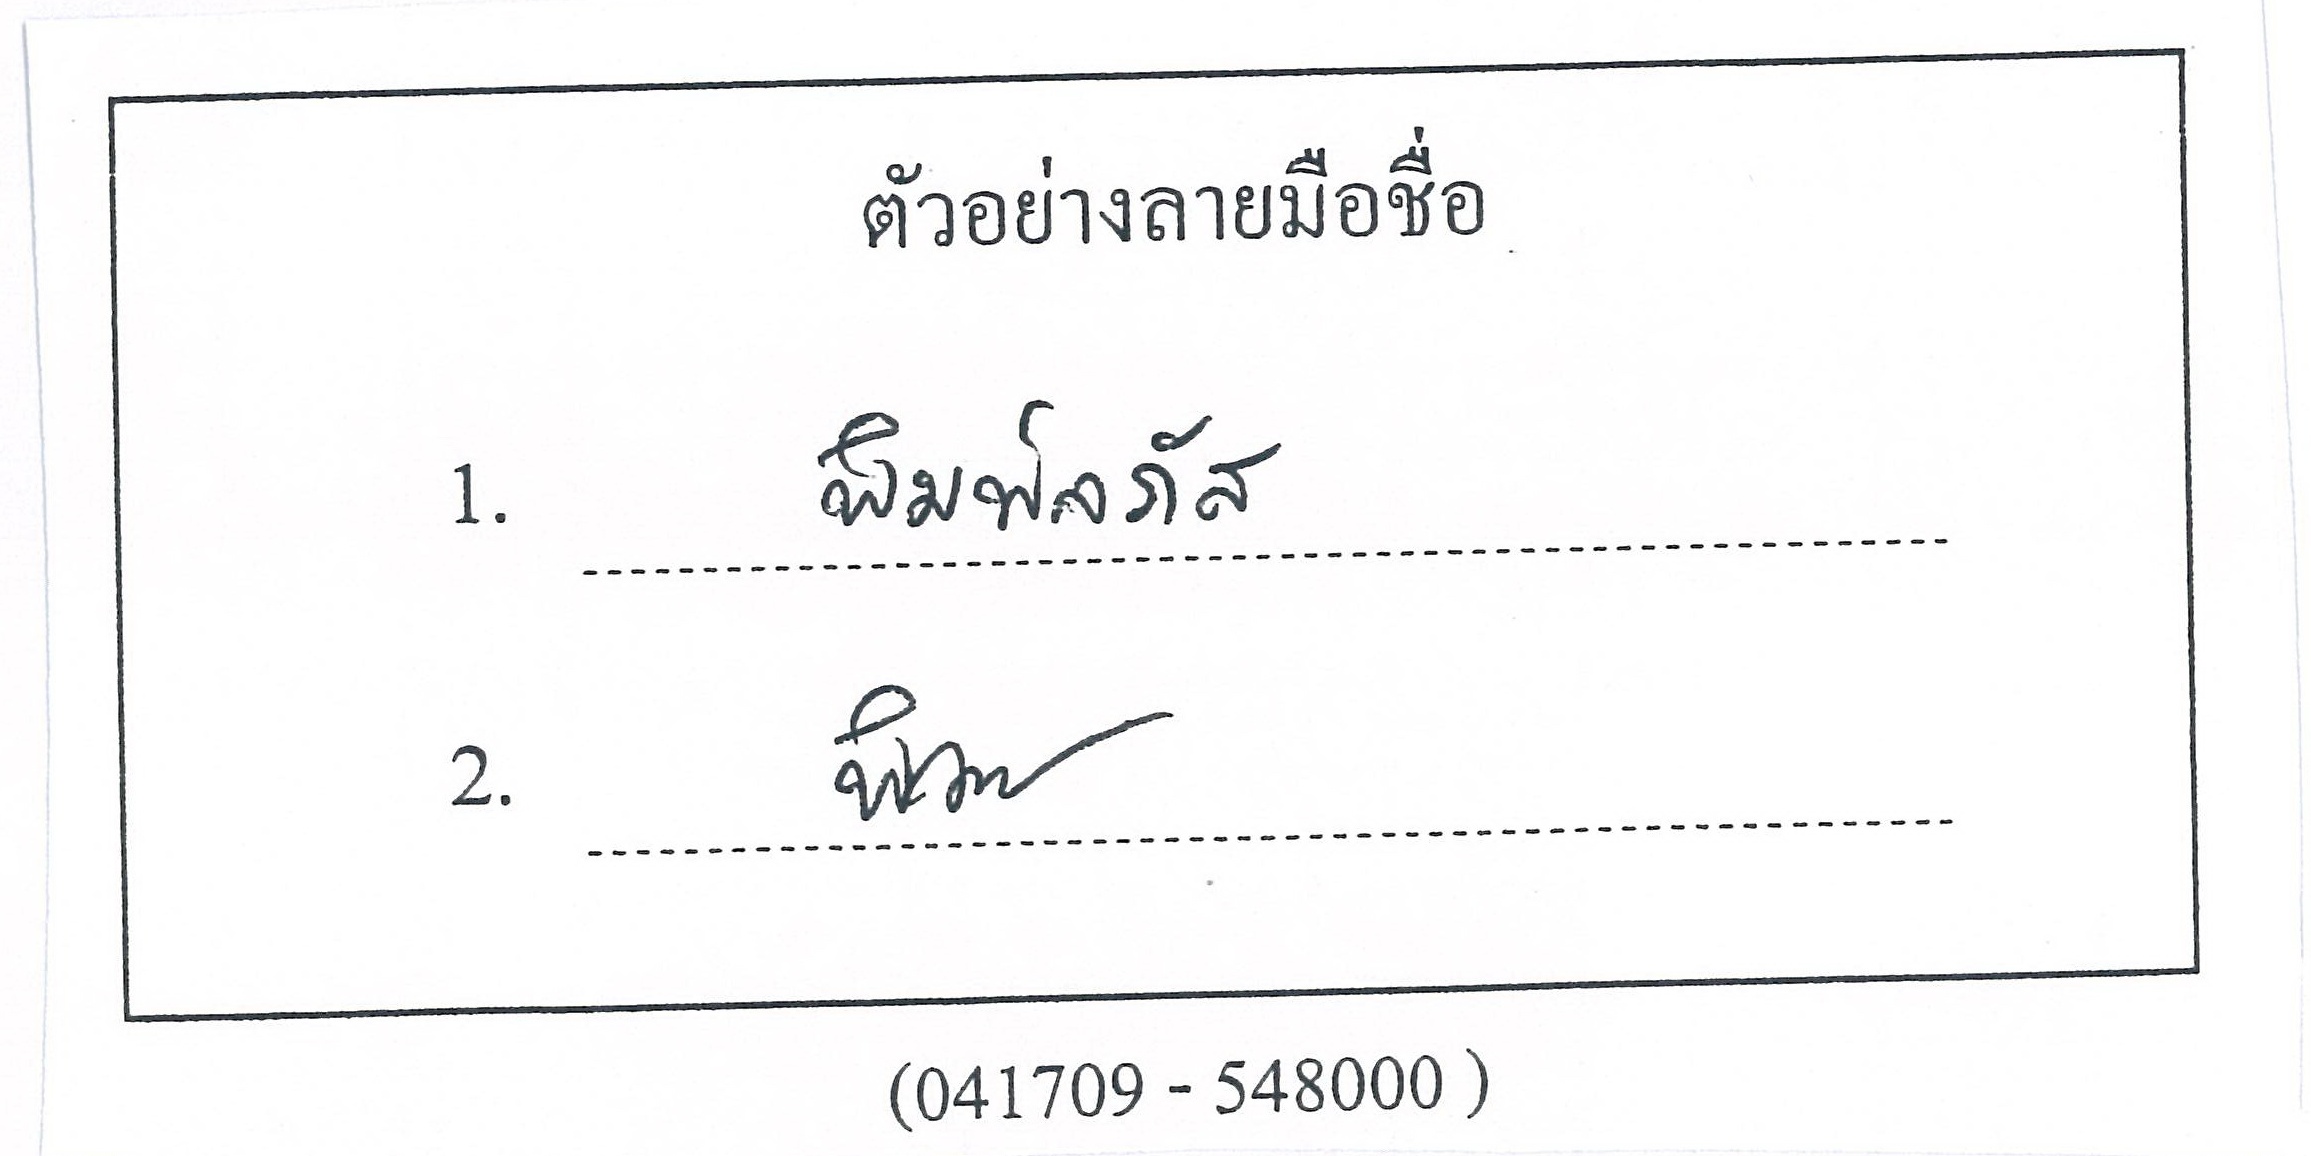 ตัวอย่างลายมือชื่อ
1. พิมพ์ลภัส
2.
(041709 - 548000 )